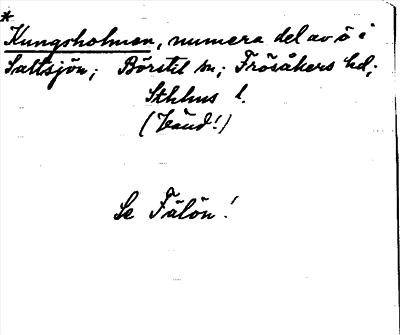 *
Kungsholmen, numera del av ö i
Saltsjön; Börstil sn; Frösåkers hd;
Sthlms l.
(känd!)
Se Fälön!